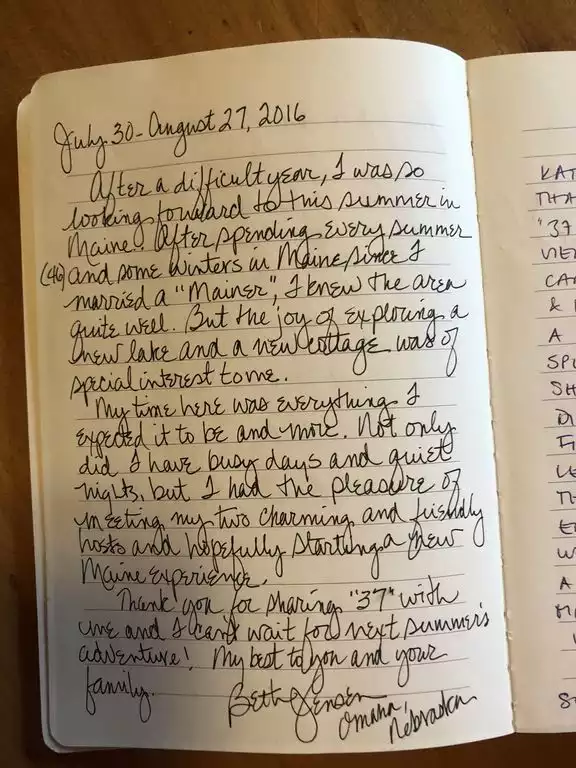 July 30 - August 27, 2016
After a difficult year, I was so
looking forward to this summer in
Maine. After spending every summer
(46) and some winters in Maine since I
married a "Mainer", I knew the area
quite well. But the joy of exploring a
new lake and a new cottage was of
special interest to me.
My time here was everything I
expected it to be and more. Not only
did I have busy days and quiet
nights, but I had the pleasure of
meeting my two charming and friendly
hosts and hopefully starting a new
Maine experience.
Thank you for sharing "37" with
me and I can't wait for next summer's
adventure! My best to you and your
family.
Beth Jensen
Omaha, Nebraska
KAT
THA
'37
VIE
CA
&
A
SPL
SH
DI
FI
LE
TH
EV
W
A
MA
S